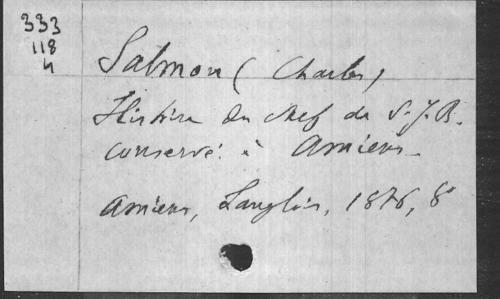 333
118
4
Salmon (Charles)
Histoire du chef de S. J. B.
conservé à Amiens.
Amiens, Langlois, 1876, 8°